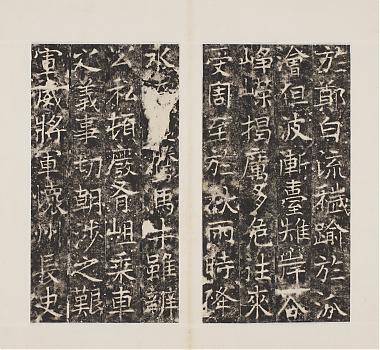 於鄭白流穢踰於汾
澮但波漸臺雉岸谷
崢嶸揭厲多危往來
受 至於秋雨時降
水 騰馬牛雖辯
公私頓廢 岨乘車
之義事切朝涉之艱
軍威將軍懷州長史